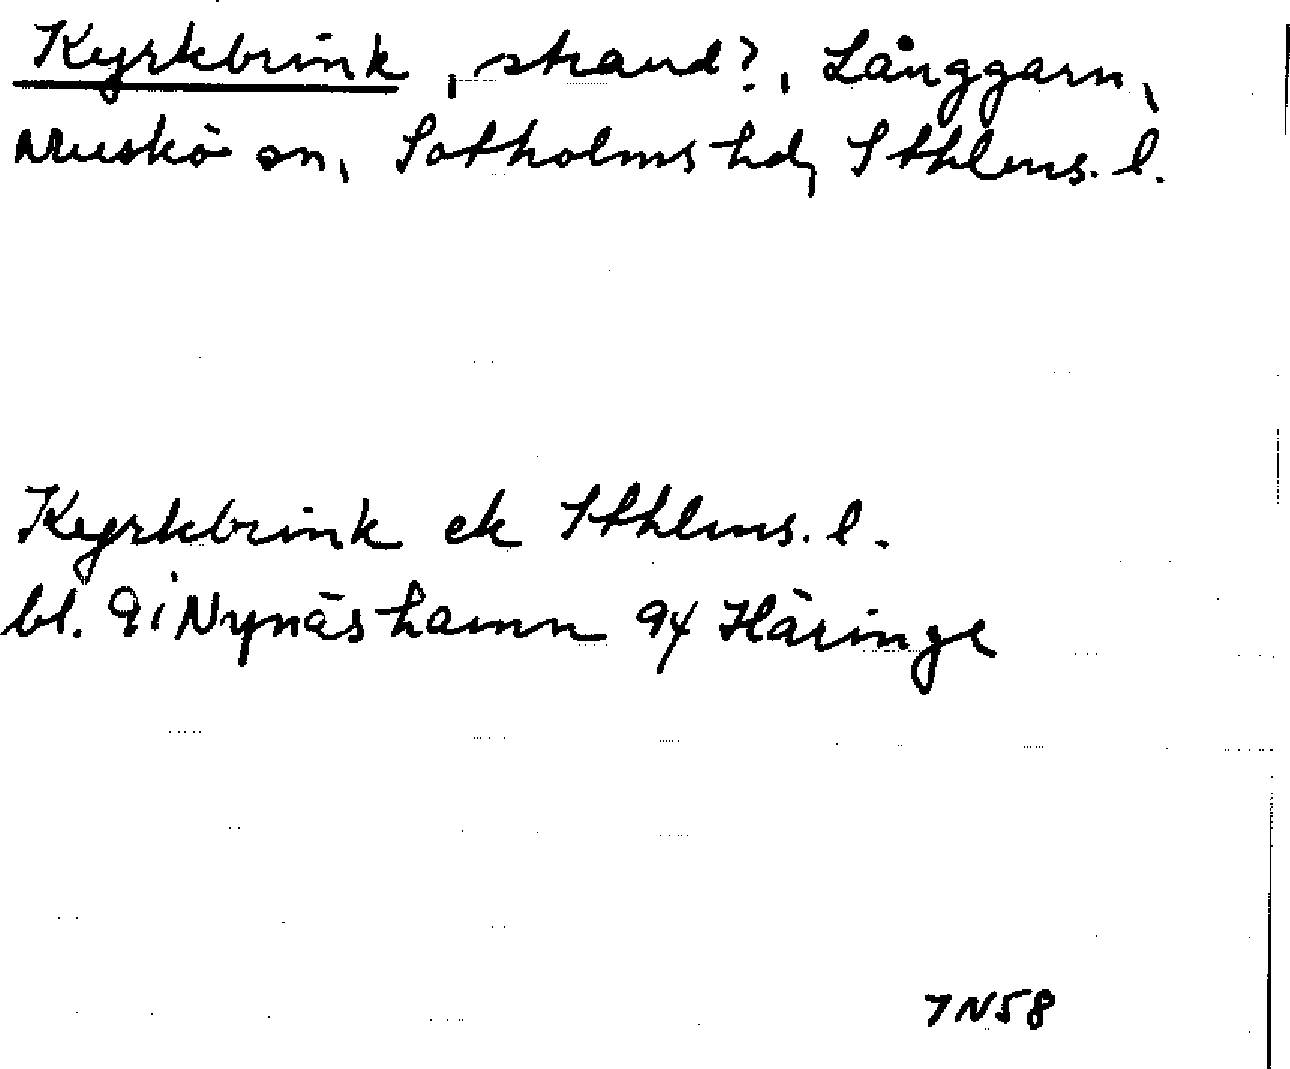 Kyrkbrink, strand?, Långgarn,
Muskö sn, Sotholms hd, Sthlms. l.
Kyrkbrink ek Sthlms. l.
bl. 9i Nynäshamn 94 Häringe
7N58